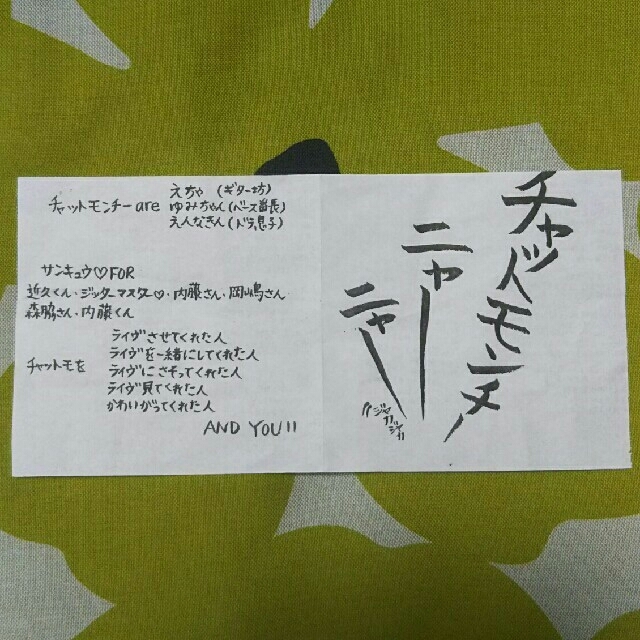 チャットモンチー
ニャー
ニャー
〃ジャカジャカ
チャットモンチー are
えちゃ (ギター坊)
ゆみちゃん (ベース番長)
えんなきん (ドラ息子)
サンキュウ♡FOR
近久くん・ジッターマスター♡・内藤さん・岡嶋さん
森脇さん・内藤くん
チャットモを
ライヴさせてくれた人
ライヴを一緒にしてくれた人
ライヴにさそってくれた人
ライヴ見てくれた人
かわいがってくれた人
AND YOU!!